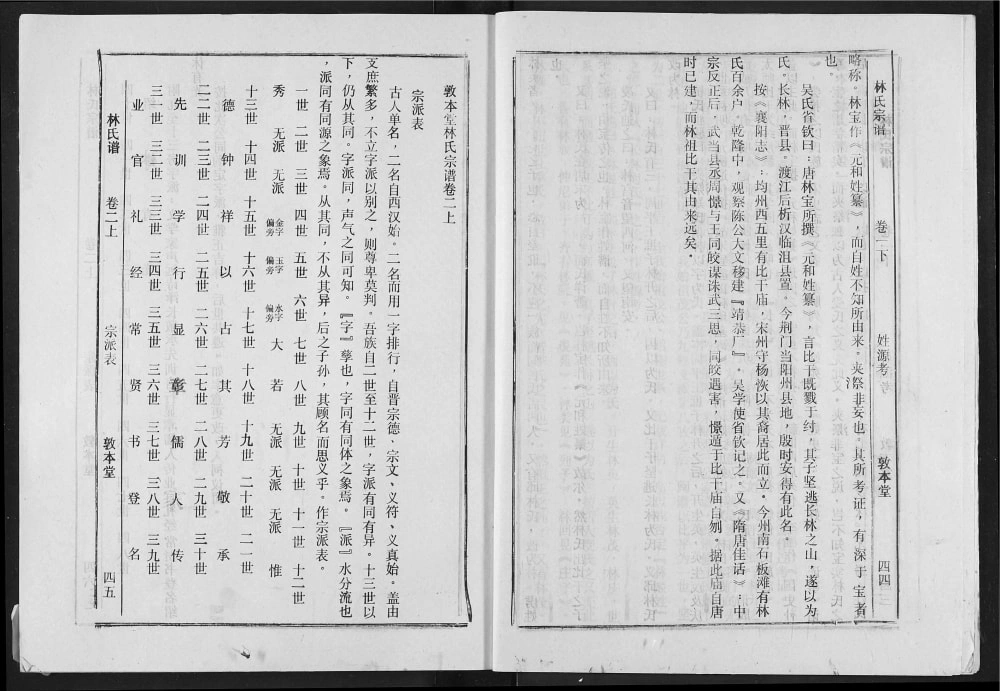 林氏宗谱 卷二下 姓源考 敦本堂 四四
略称。林宝作《元和姓纂》，而自姓不知所由来，夹漈非妄也。其所考证，有深于宝者
也。
吴氏省钦曰：唐林宝所撰《元和姓纂》，言比干既戮于纣，其子坚逃长林之山，遂以为
氏。长林，晋县。渡江后析汉临沮县置。今荆门当阳州县地，殷时安得有此名。
按《襄阳志》：均州西五里有比干庙，宋州守杨恢以其裔居此而立。今州南石板滩有林
氏百余户。乾隆中，观察陈公大文移建『靖恭厂』。吴学使省钦记之。又《隋唐佳话》：中
宗反正后，武当县丞周憬与王同皎谋诛武三思，同皎遇害，憬遁于比干庙自刎。据此庙自唐
时已建，而林祖比干其由来远矣。
敦本堂林氏宗谱卷二上
宗派表
古人单名，二名自西汉始。二名而用一字排行，自晋宗德、宗文、义符、义真始。盖由
支庶繁多，不立字派以别之，则尊卑莫判。吾族自二世至十二世，字派有同有异。十三世以
下，仍从其同。字派同，声气之同可知。『字』孳也，字同有同体之象焉。『派』水分流也
，派同有同源之象焉。从其同，不从其异，后之子孙，其顾名而思义乎。作宗派表。
一世 二世 三世 四世 五世 六世 七世 八世 九世 十世 十一世 十二世
秀 无派 无派 金字偏旁 玉字偏旁 水字偏旁 大 若 无派 无派 无派 惟
十三世 十四世 十五世 十六世 十七世 十八世 十九世 二十世 二一世
德 钟 祥 以 占 其 芳 敬 承
二二世 二三世 二四世 二五世 二六世 二七世 二八世 二九世 三十世
先 训 学 行 显 彰 儒 人 传
三一世 三二世 三三世 三四世 三五世 三六世 三七世 三八世 三九世
业 官 礼 经 常 贤 书 登 名
林氏谱 卷二上 宗派表 敦本堂 四五